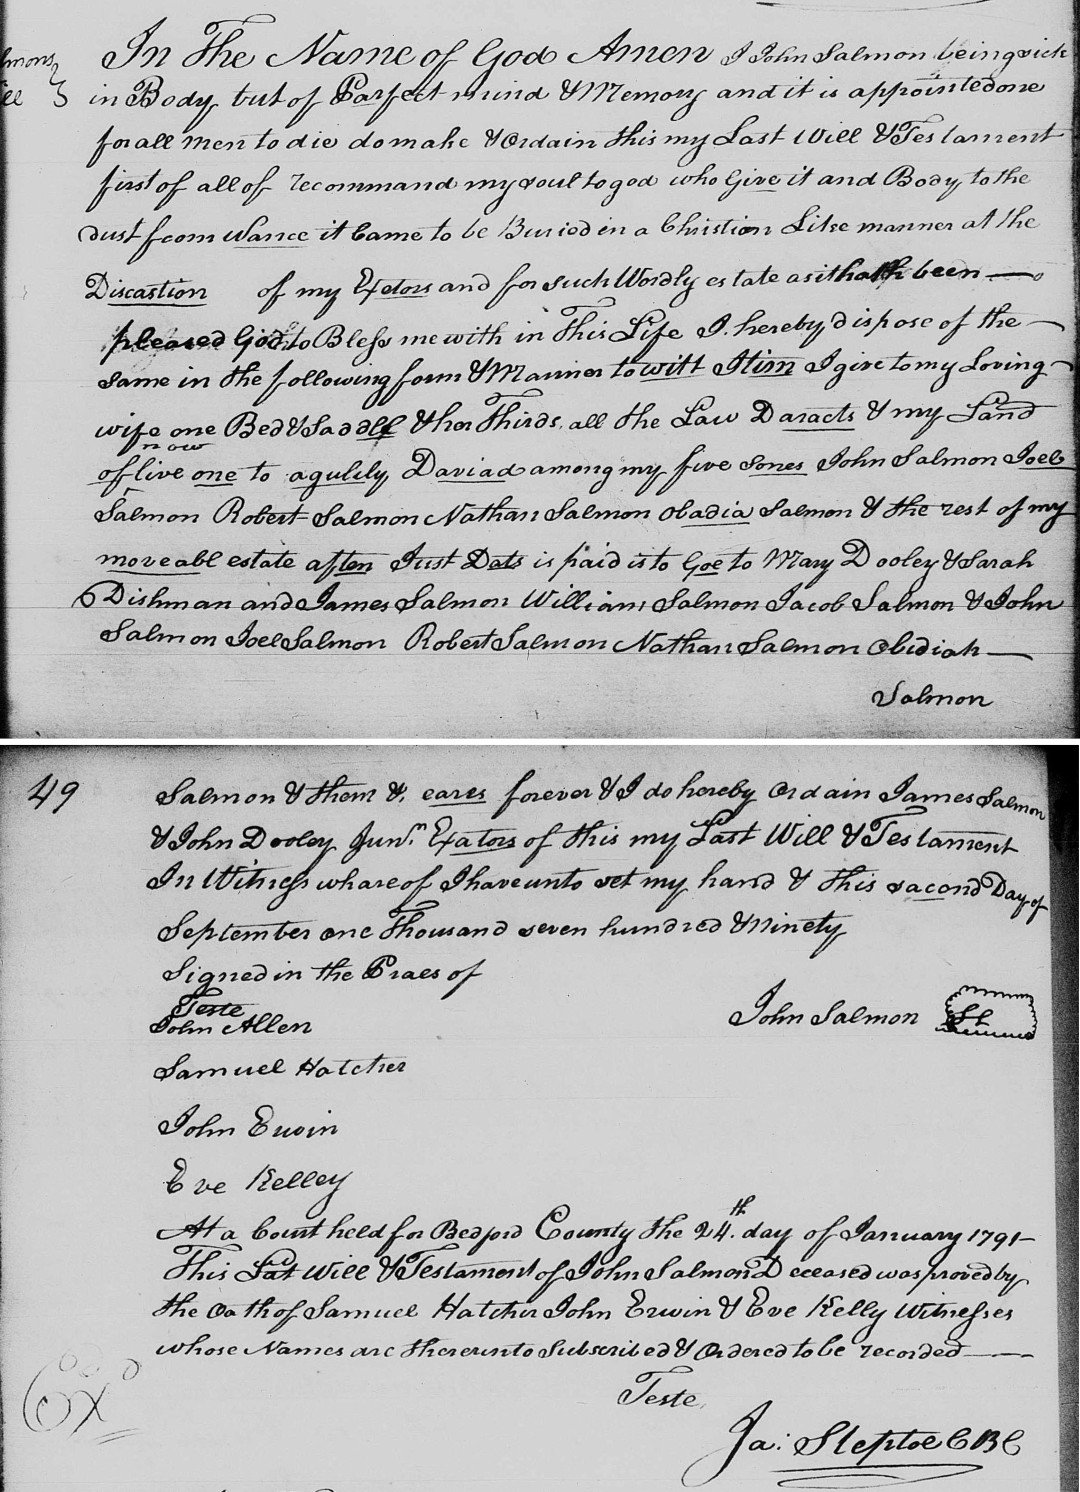 lmons
ll
In The Name of God Amen I John Salmon being sick
in Body, but of Parfect mind & Memory and it is appointed one
for all men to die do make & Ordain this my Last Will & Testament
first of all of recommand my soul to god who Give it and Body, to the
dust from Wance it Came to be Buried in a Christion Like manner at the
Discastion of my Exetors and for such Wordly estate as it hath been
pleased God, to Bless me with in This Life I. hereby dispose of the
same in the following form & Manner to witt Itim I give to my Loving
wife one Bed & Saddle & her Thirds, all the Law Daracts & my Land
now
of live one to agulily, Daviad among my five sones John Salmon Joel
Salmon Robert Salmon Nathan Salmon Obadia Salmon & the rest of my
moveabl estate aften Just Dets is paid is to Goe to Mary Dooley & Sarah
Dishman and James Salmon William Salmon Jacob Salmon & John
Salmon Joel Salmon Robert Salmon Nathan Salmon Obidiah
Salmon
49
Salmon & them &. eares forever & I do hereby Ordain James Salmon
& John Dooley Junr. Exators of this my Last Will & Testament
In Witness whareof I have unto set my hand & this sacond Day of
September one Thousand seven hundred & Ninety
Signed in the Praes of
Teste
John Allen
John Salmon
Samuel Hatcher
John Erwin
Eve Kelley
At a Court held for Bedford County the 24th. day of January 1791
This Last Will & Testament of John Salmon Deceased was proved by
the Oath of Samuel Hatcher John Erwin & Eve Kelly Witnesses
whose Names are thereunto Subscribed & Ordered to be recorded
Teste,
Ex
Ja: Steptoe CBC